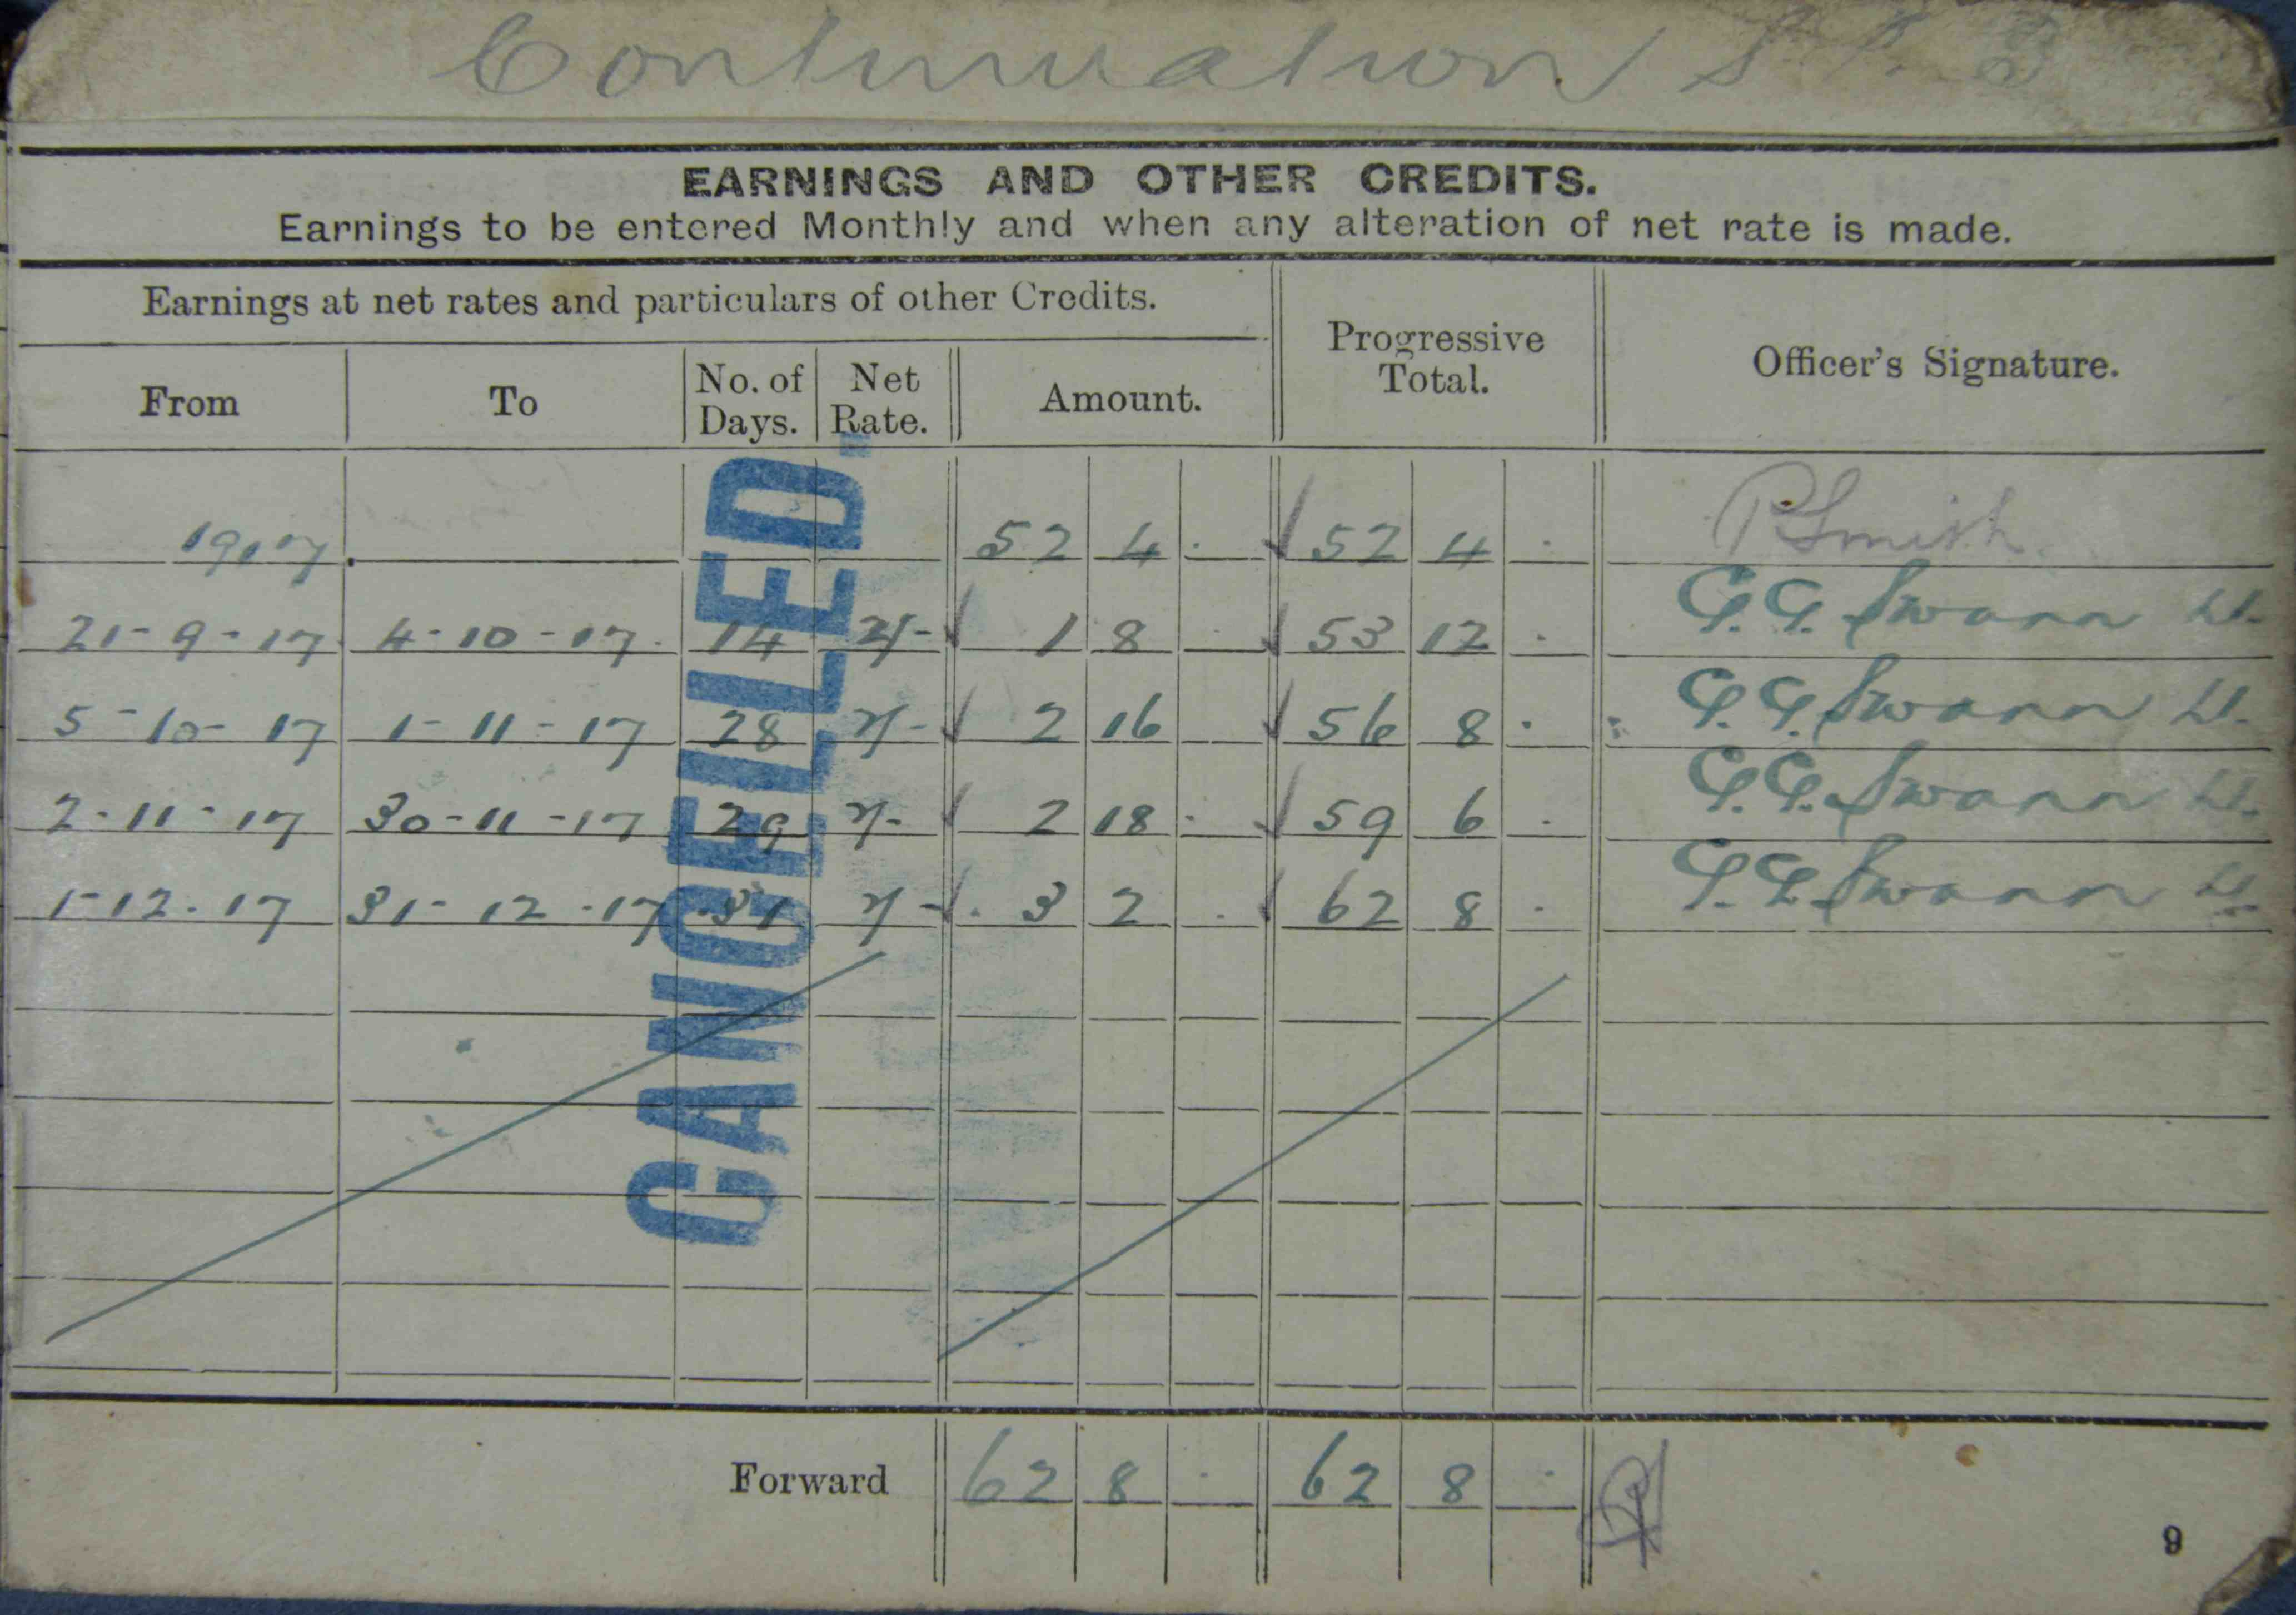 Continuation
EARNINGS AND OTHER CREDITS.
Earnings to be entered Monthly and when any alteration of net rate is made.
Earnings at net rates and particulars of other Credits.
Progressive Total.
Officer's Signature.
From To No. of Days. Net Rate. Amount.
1917. 52 4 . 52 4 . P Smith.
21-9-17 4-10-17. 14 2/- 1 8 . 53 12 . G. G. Swann Lt.
5-10-17 1-11-17 28 2/- 2 16 56 8 . G. G. Swann Lt.
2-11-17 30-11-17 29 2/- 2 18 . 59 6 . G. G. Swann Lt.
1-12-17 31-12-17 31 2/- 3 2 . 62 8 . G. G. Swann Lt.
CANCELLED.
Forward 62 8 . 62 8 .
9